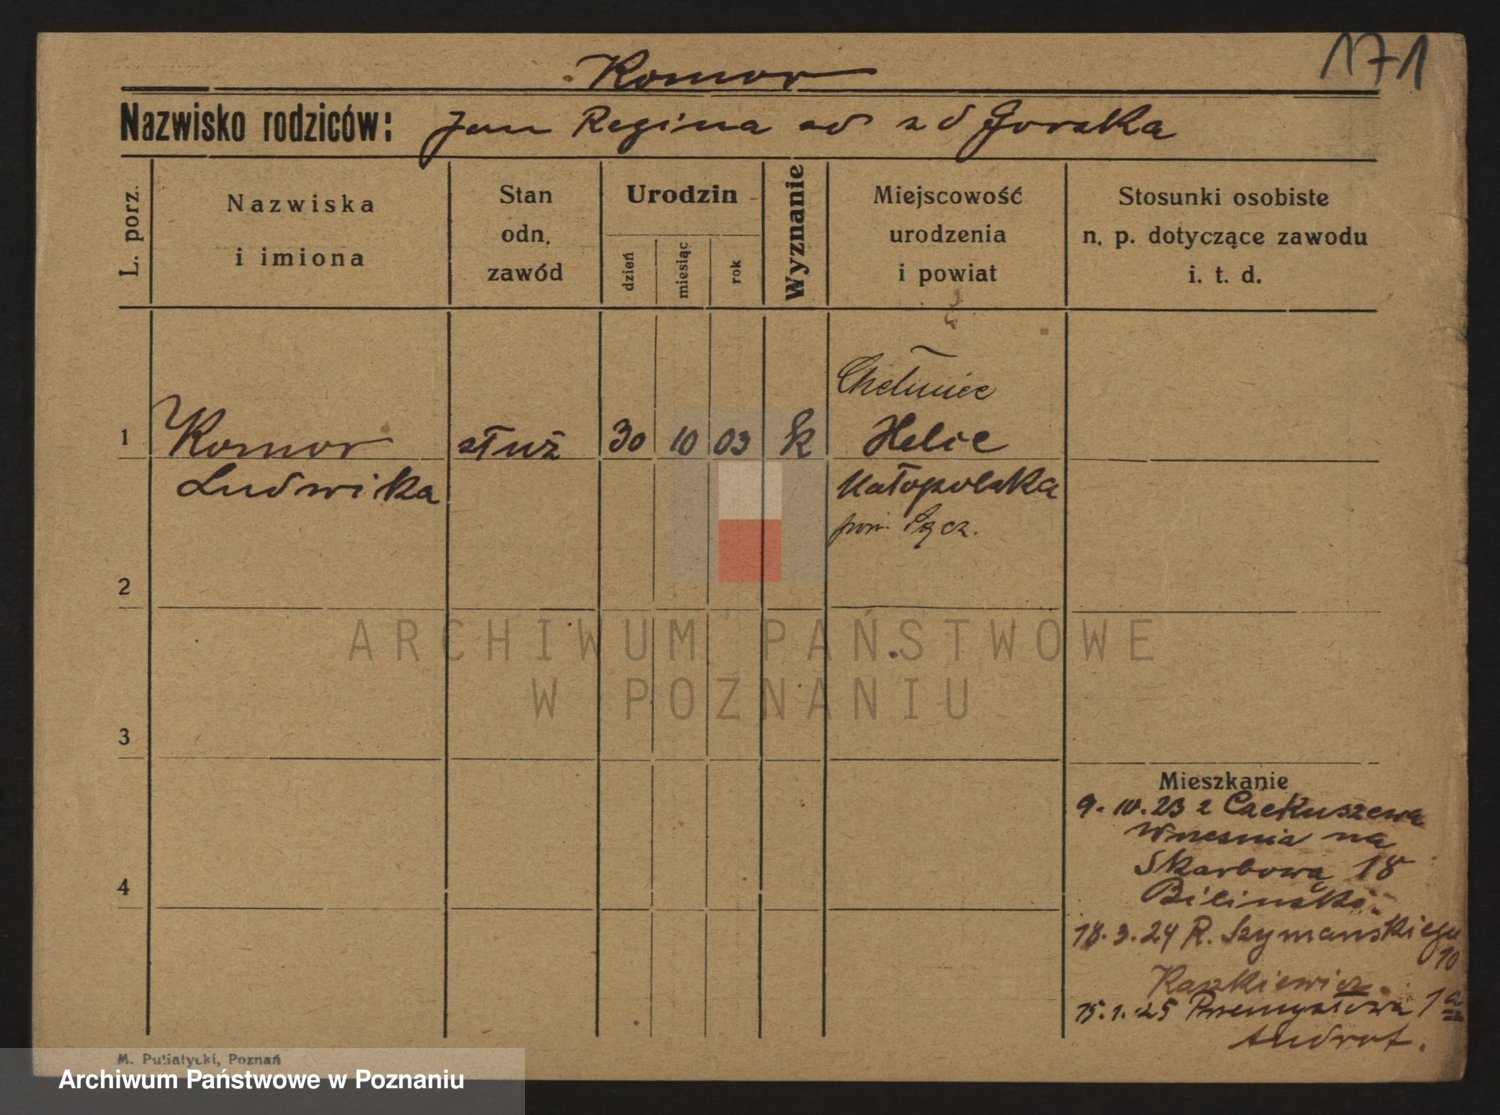 171
Komor
Nazwisko rodziców: Jan Regina od zd Gorska
L. porz.
Nazwiska
i imiona
Stan
odn.
zawód
Urodzin
dzień
miesiąc
rok
Wyznanie
Miejscowość
urodzenia
i powiat
Stosunki osobiste
n. p. dotyczące zawodu
i. t. d.
Chełmiec
1 Komor służ 30 10 03 k Helic
Ludwika Małopolska
pow. Sącz.
2
3
4
ARCHIWUM PAŃSTWOWE
W POZNANIU
Mieszkanie
9.10.23 z Czekuszewa
Wrzesnia na
Skarbową 18
Bilinska.
18.3.24 R. Szymanskiego
10
Raszkiewicz.
15.1.25 Przemysłowa 1a
Androt.
M. Putiatycki, Poznań
Archiwum Państwowe w Poznaniu